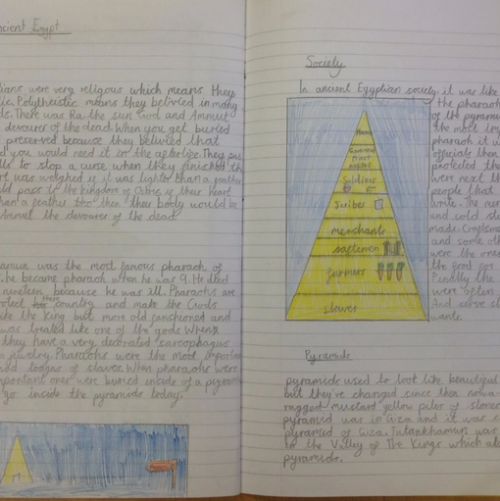 ncient Egypt
ians were very religous which means they
ic. Polytheistic means they belived in many
ds. There was Ra the sun God and Ammut
devourer of the dead. When you get buried
preserved because they belived that
you would need it in the afterlife. They put
to stop a curse when they finished the
was weighed if it was lighter than a feather
pass to the kingdom of if their heart
than a feather then their body would be
Ammut the devourer of the dead
was the most famous pharaoh of
he became pharaoh when he was 9. He died
nineteen because he was ill. Pharaohs are
country and make the Gods
the King but more old fanshioned and
was treated like one of the gods When
they have a very decorated sarcophagus
jewelry. Pharaohs were the most importan
of slaves. When pharaohs were
important ones were buried inside of a pyram
go inside the pyramids today.
Society
In ancient Egyptian society it was like
the pharaoh
of the pyramid
the most im
pharaoh it w
officials then
protected the
were next th
people that
write. The mer
and sold st
made. Craftsmen
and some ot
were the ones
the food get
Finally the
were Slaves
And serve a
wants.
Soldiers
Scribes
merchants
farmers
slaves
Pyramids
pyramids used to look like beautiful
but they've changed since then now a
ragged mustard yellow piles of stones
pyramid was in Giza and it was c
pyramid of Giza. Tutankhamun was
in the Valley of The Kings which als
pyramids.